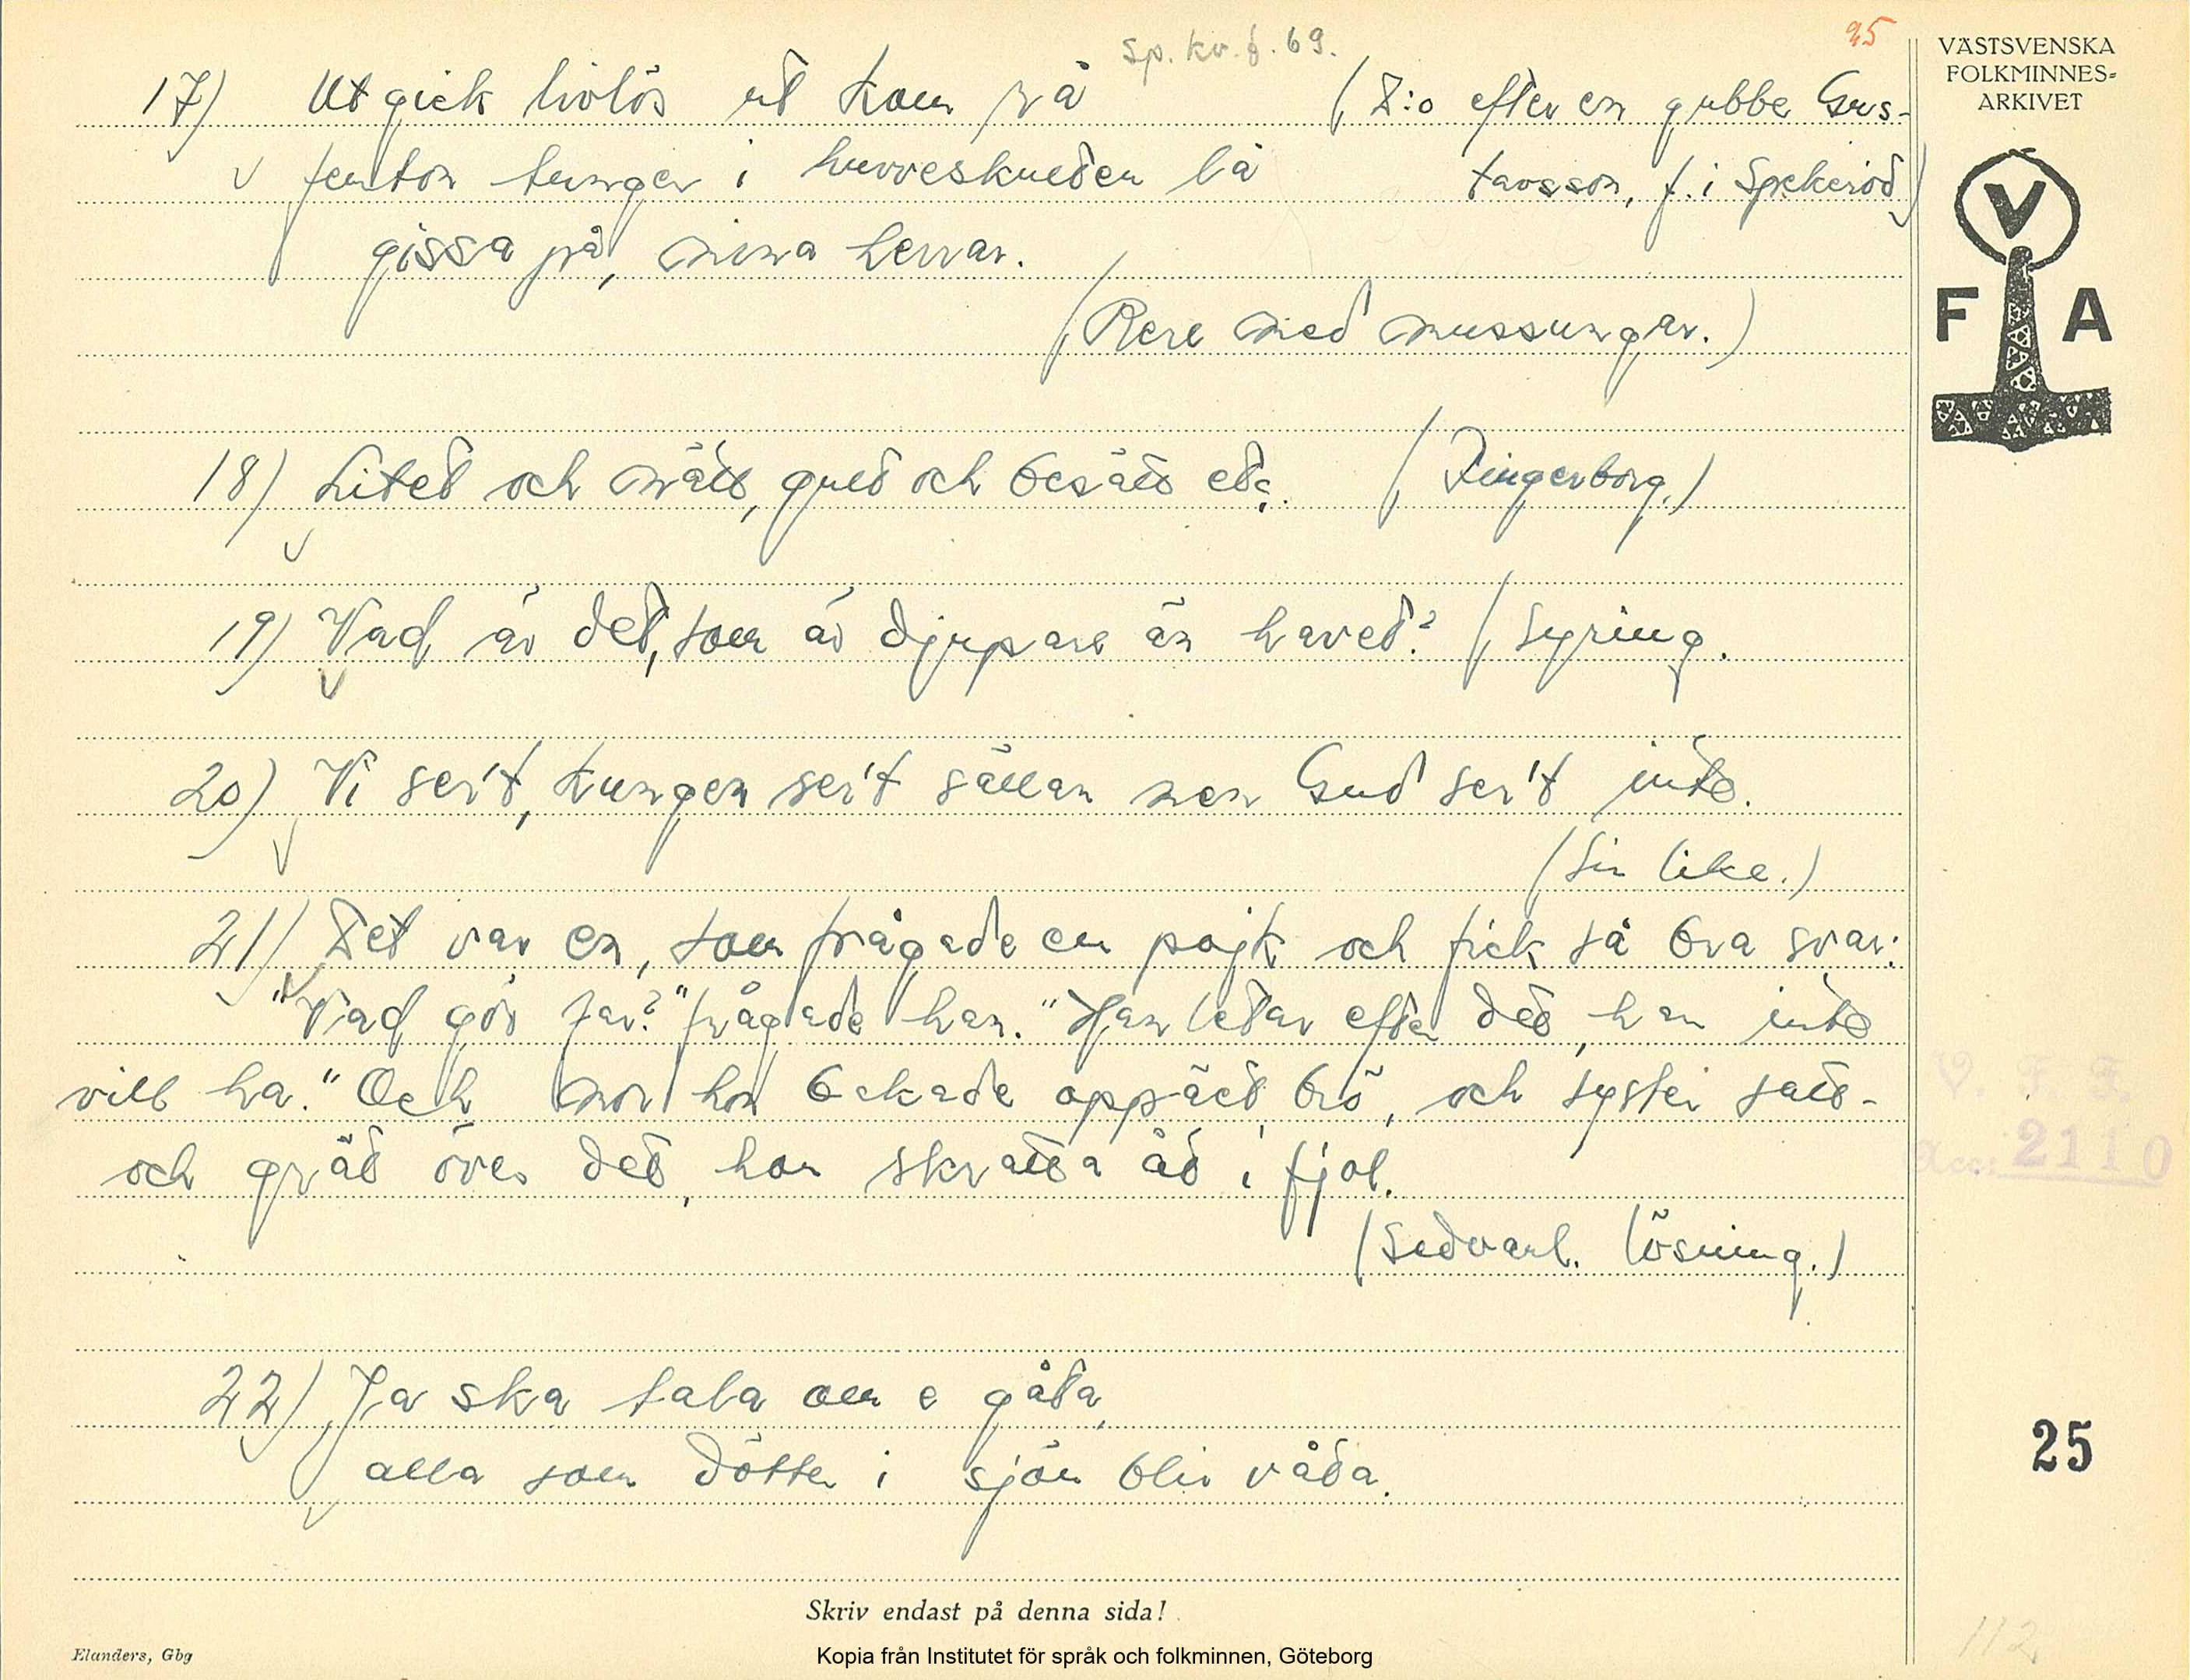 Sp. kv. f. 69.
25
VÄSTSVENSKA
FOLKMINNES=
ARKIVET
17) Ut gick livlös ut kom vå (D:o efter en gubbe Gus-
femton tungor i huvveskueden lå tavsson, f. i Spekeröd)
gissa på, mina herrar.
(Rere med mussungar.)
V
F A
18) Litet och nätt, gult och besatt etc. (Fingerborg.)
19) Vad är det, som är djupare än havet? (Syring.
20) Vi ser't, kungen ser't sällan men Gud ser't inte.
(Sin like.)
21) Det var en, som frågade en pojk och fick så bra svar:
"Vad gör far?" frågade han. "Han letar efter det, han inte
vill ha." Och mor hon bakade oppätet brö, och syster satt
och grät över det, hon skratta åt i fjol.
(Sedvanl. lösning.)
V. F. F.
Acc: 2110
22) Ja ska tala om e gåta,
alla som dötter i sjön blir våta.
25
Skriv endast på denna sida!
Elanders, Gbg
Kopia från Institutet för språk och folkminnen, Göteborg
112